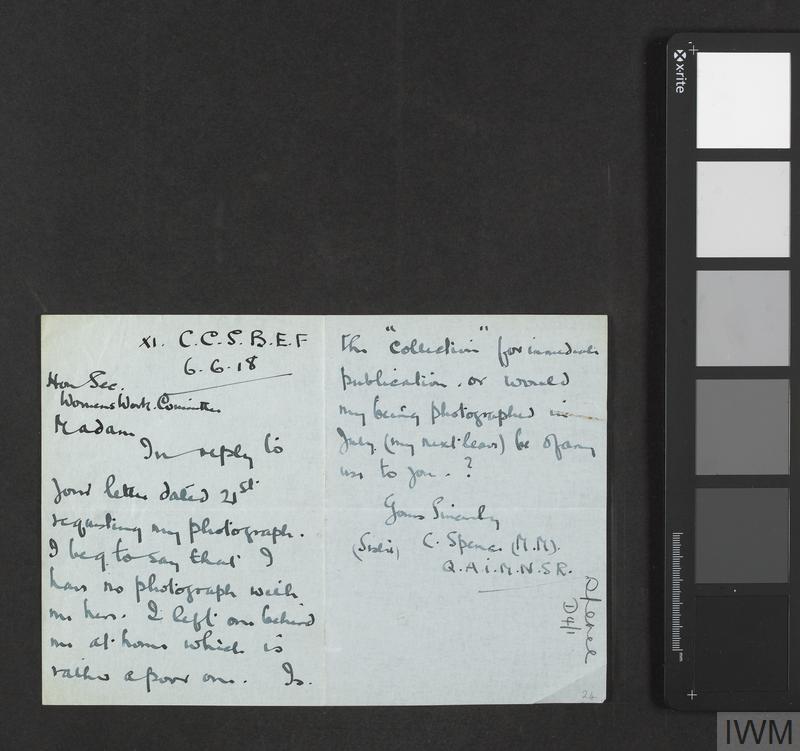 XI. C.C.S. B.E.F
6.6.18
Hon Sec.
Womens Work. Committee
Madam
In reply to
your letter dated 21st
requesting my photograph.
I beg to say that I
have no photograph with
me here. I left one behind
me at home which is
rather a poor one. Is.
this "collection" for immediate
publication. or would
my being photographed in
July (my next leave) be of any
use to you. ?
Yours Sincerely
(Sister) C. Spence (M.M).
Q.A.I.M.N.S.R.
Spence
D4/1
24
x-rite
mm
IWM